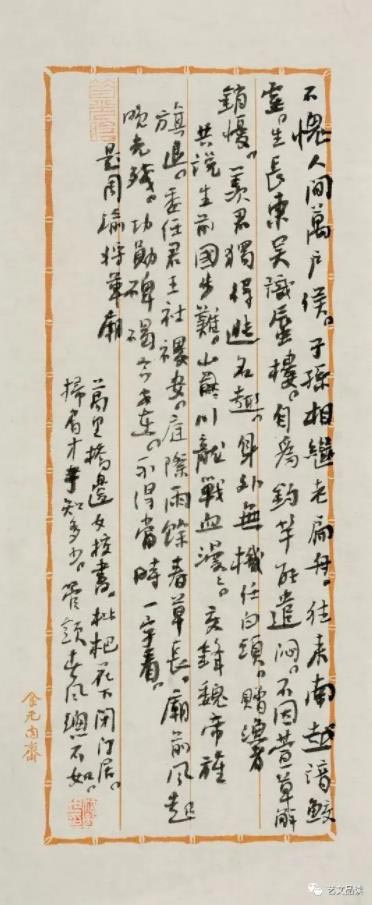 不愧人間萬户侯。子孫相繼老扁舟。往来南越諳鮫
室。生長東吳識蜃樓。自為釣竿能遣悶。不因萱草解
銷憂。羡君獨得逃名趣。身外無機任白頭。贈漁者
共説生前國步難。山川龍戰血漫々。交鋒魏帝旌
旗退。委任君王社稷安。庭際雨餘春草長。廟前風起
晚光殘。功勛碑碣今安在。不得當時一字看。
題周瑜將軍廟
萬里橋邊女校書。枇杷花下閉門居。
掃眉才子知多少。管領春風總不如。
艺文品谈